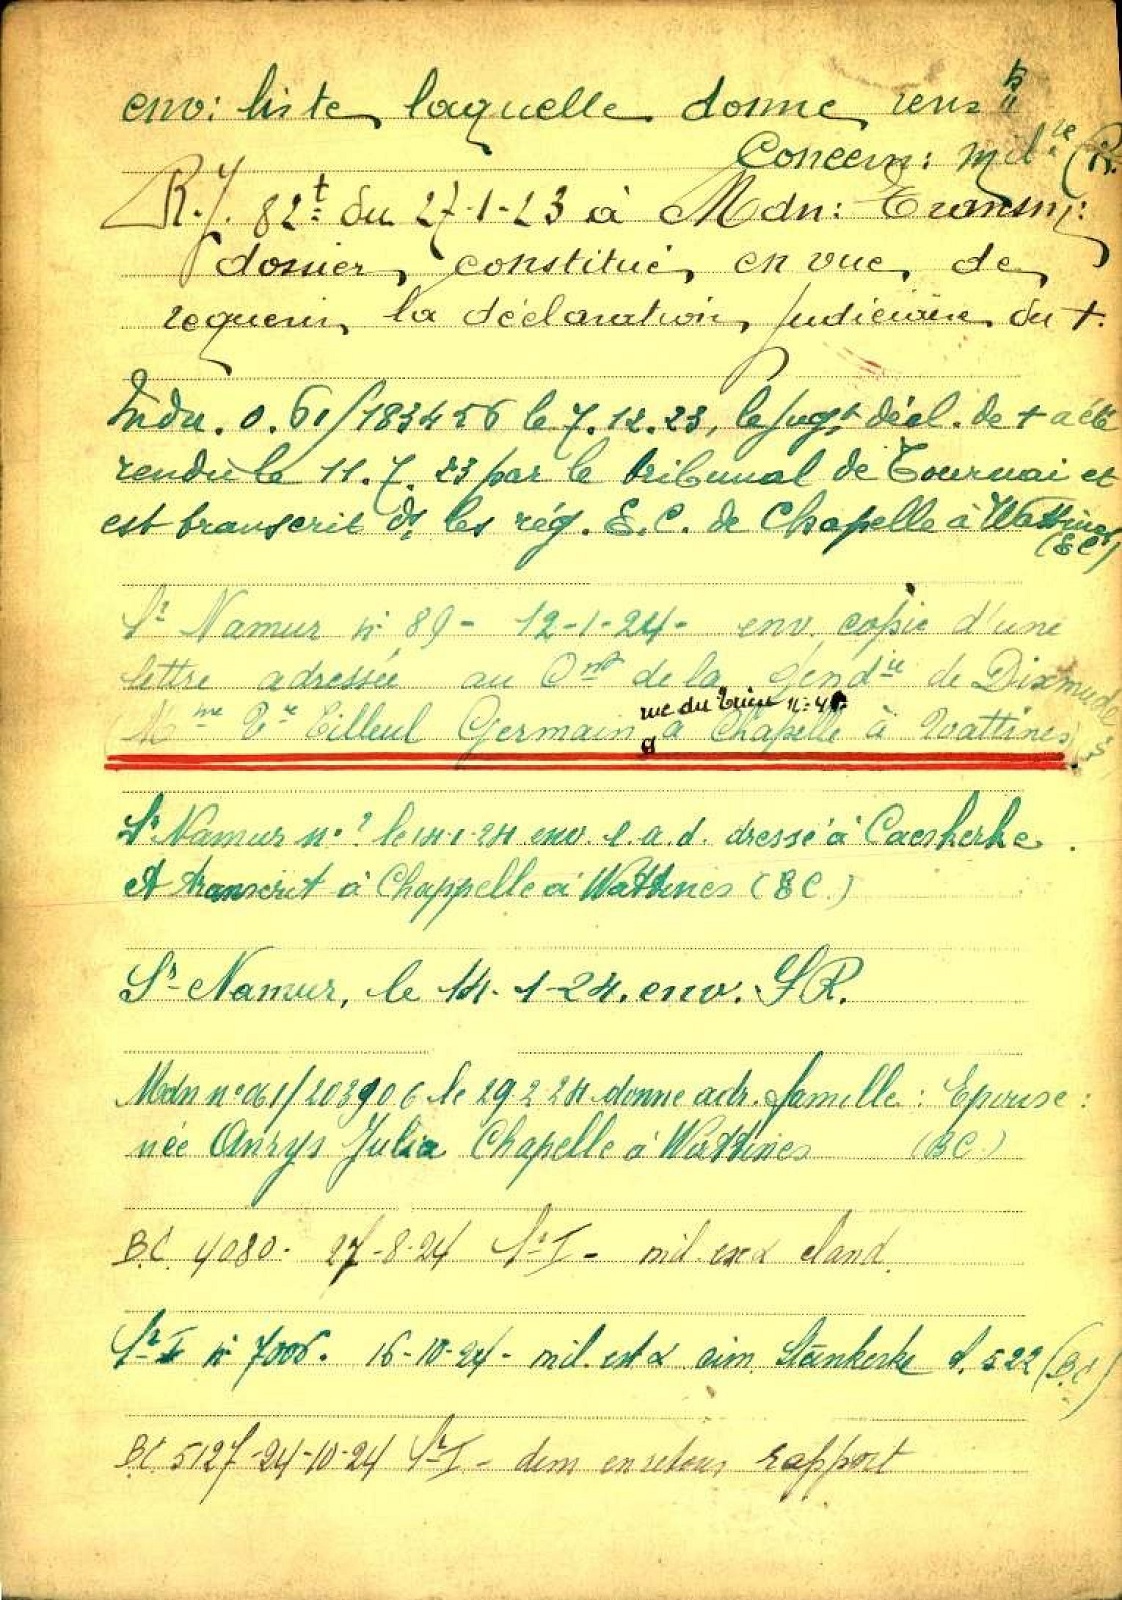 env: liste laquelle donne rens ts
Concern: milre (R.
R.J. 82t du 27-1-23 à Mdn: Transm:
dossier constitué en vue de
requérir la déclaration judiciaire du +.
Mdn. 0.61/183456 le 7.12.23, le jugt décl. de + a été
rendu le 11.7.23 par le tribunal de Tournai et
est transcrit ds les rég. E.C. de Chapelle à Wattines
(EC)
Sr Namur n° 89 - 12-1-24 - env. copie d'une
lettre adressée au Cmt de la Gendie de Dixmude
rue du Trieu n: 4
Mme Ve Tilleul Germain à Chapelle à Wattines
Sr Namur n° ? le 14-1-24 env. e.a.d. dressé à Caeskerke.
et transcrit à Chappelle à Wattines (BC.)
Sr Namur, le 14-1-24. env. SR.
Mdn n° 061/203906 le 29.2.24 donne adr. famille: Epouse:
née Anrys Julia Chapelle à Wattines (BC.)
BC. 4080. 27-8-24 Sr I - mil. eland.
Sr I n° 7006. 16-10-24 - mil. est α cim. Steenkerke d. 522 (BC)
BC 5127-24-10-24 Sr I - dem en retour rapport